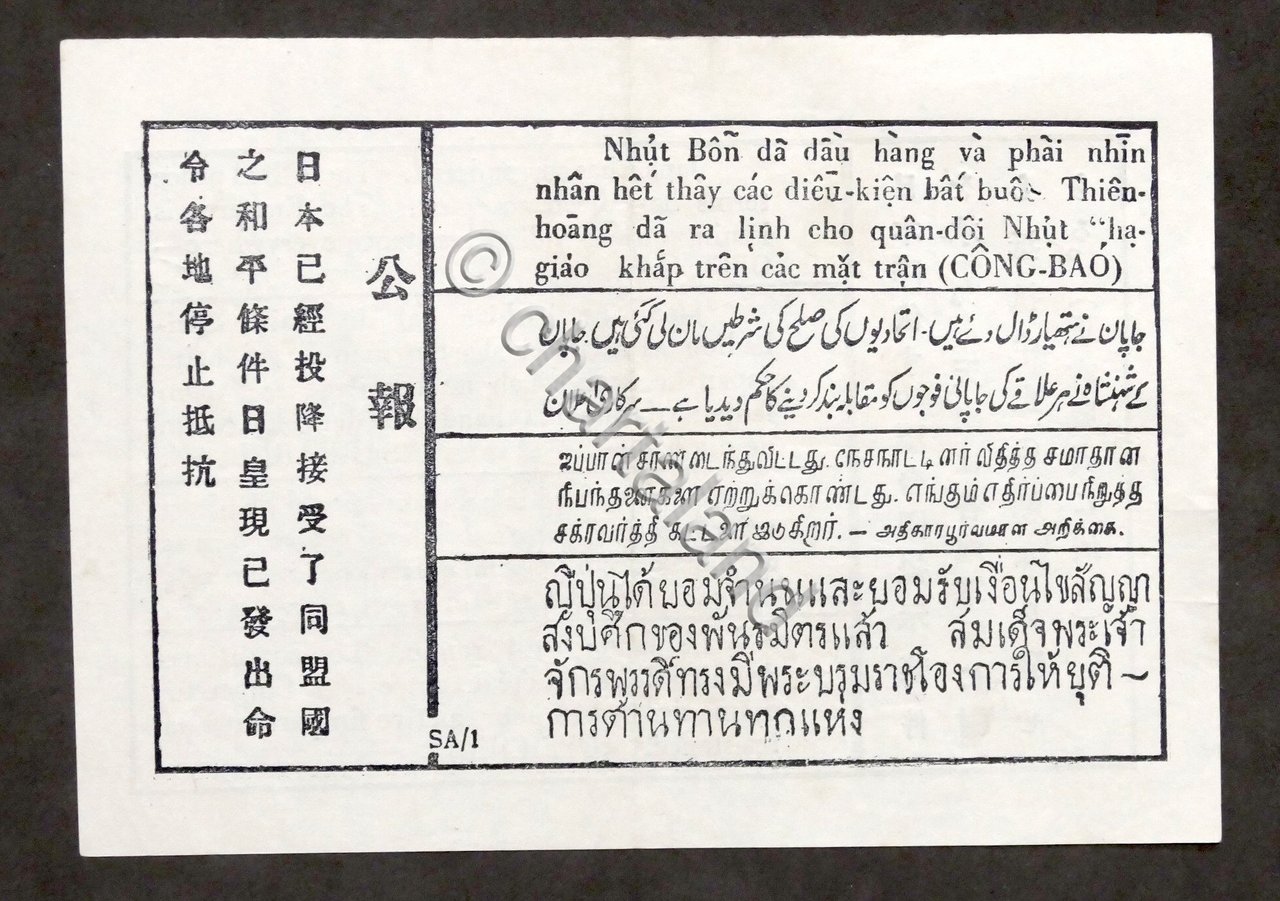 公報
日本已經投降接受了同盟國
之和平條件日皇現已發出命
令各地停止抵抗
Nhụt Bỗn dã dầu hàng và phãi nhīn
nhân hết thây các diều-kiện bât buộ Thiên-
hoāng dã ra lịnh cho quân-dội Nhụt “hạ-
giáo khắp trên các mặt trận (CÔNG-BÁO)
جاپان نے ہتھیار ڈال دئے ہیں۔ اتحادیوں کی صلح کی شرطیں مان لی گئی ہیں۔ جاپان
کے شہنشاہ نے ہر علاقے کی جاپانی فوجوں کو مقابلہ بند کردینے کا حکم دیدیا ہے ـ سرکاری اعلان
ஜப்பான் சரண்டைந்துவிட்டது. நேசநாட்டினர் விதித்த சமாதான
நிபந்தனைகளை ஏற்றுக்கொண்டது. எங்கும் எதிர்ப்பை நிறுத்த
சக்ரவர்த்தி கட்டளை இடுகிறார். — அதிகாரபூர்வமான அறிக்கை.
ญี่ปุ่นได้ยอมจำนนและยอมรับเงื่อนไขสัญญา
สงบศึกของพันธมิตรแล้ว สมเด็จพระเจ้า
จักรพรรดิ์ทรงมีพระบรมราชโองการให้ยุติ—
การต้านทานทุกแห่ง
SA/1
© chartaland